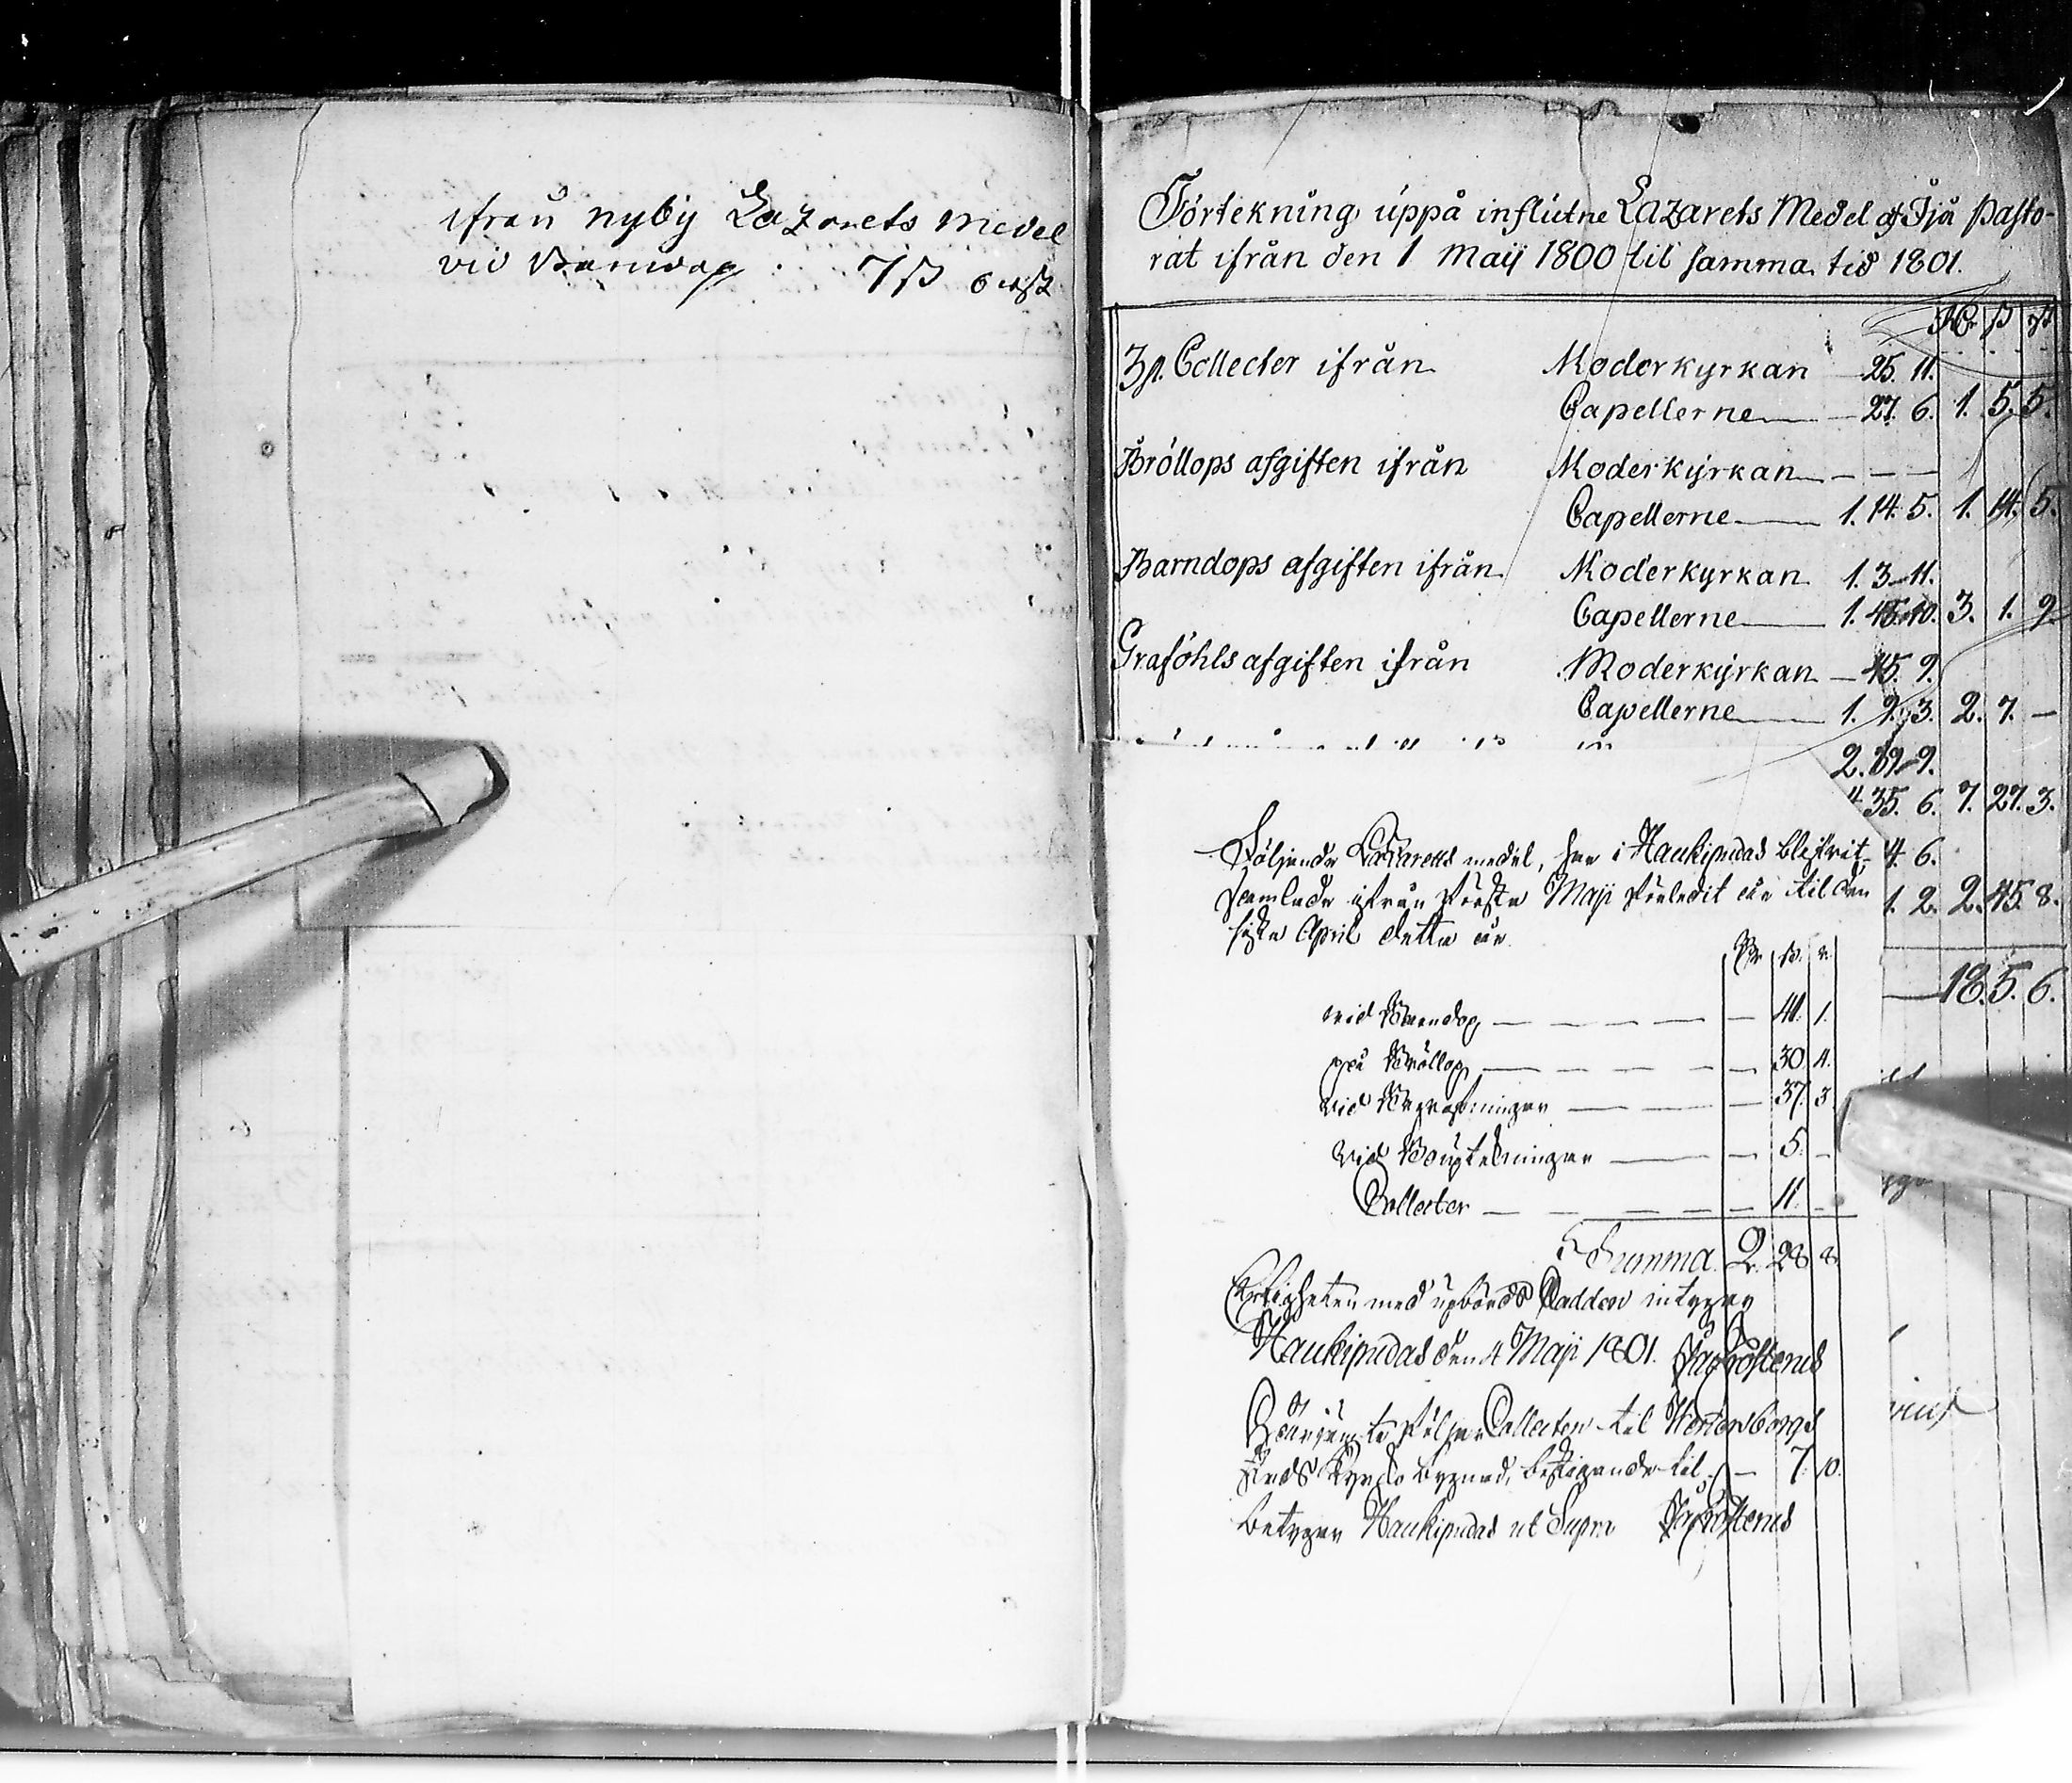 ifrån nyby Lazarets medel
vid Barndop 7 ß 6 rst
Förtekning uppå influtne Lazarets Medel af Ijå Pasto-
rat ifrån den 1 Maij 1800 til samma tid 1801.
Rdr ß rst
3 st. Collecter ifrån Moderkyrkan — 25. 11.
Capellerne — 27. 6. 1. 5. 5.
Bröllops afgiften ifrån Moderkyrkan — — —
Capellerne — 1. 14. 5. 1. 14. 5.
Barndops afgiften ifrån Moderkyrkan 1. 3. 11.
Capellerne — 1. 45. 10. 3. 1. 9.
Graföhls afgiften ifrån Moderkyrkan — 45. 9.
Capellerne — 1. 9. 3. 2. 7. —
2. 39. 9.
4. 35. 6. 7. 27. 3.
4. 6.
1. 2. 2. 45. 8.
18. 5. 6.
Följande Lazaretts medel, har i Haukipudas blifvit
samlade ifrån första Maji förledit år til den
sista April detta år
Rdr ß. r.
vid Barndop — — — — — 41. 1.
på Bröllop — — — — — 30. 4.
vid Begrafningar — — — 37. 3
vid Bouptekningar — — 5. —
Collecter — — — — — 11. —
Summa. 2. 28. 8.
Riktigheten med upbörds intygar
Haukipudas den 4 Maji 1801.
Härjemte följer Collecten til Wenersborgs
Stads Kyrko bygnad, bestigande til — 7. 10.
betygar Haukipudas ut Supra